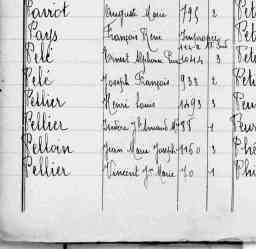 Parrot Auguste Marie 795 2 Pet
Pays François René Impropre Pét
Pelé Ernest Alphonse 3 Pet
Pelé Joseph François 932 2 Pet
Pellier Henri Louis 1493 3 Peu
Pellier 85 1 Peur
Pelloin Jean Marie Joseph 1160 3 Phé
Pellier Vincent Jn Marie 70 1 Phi